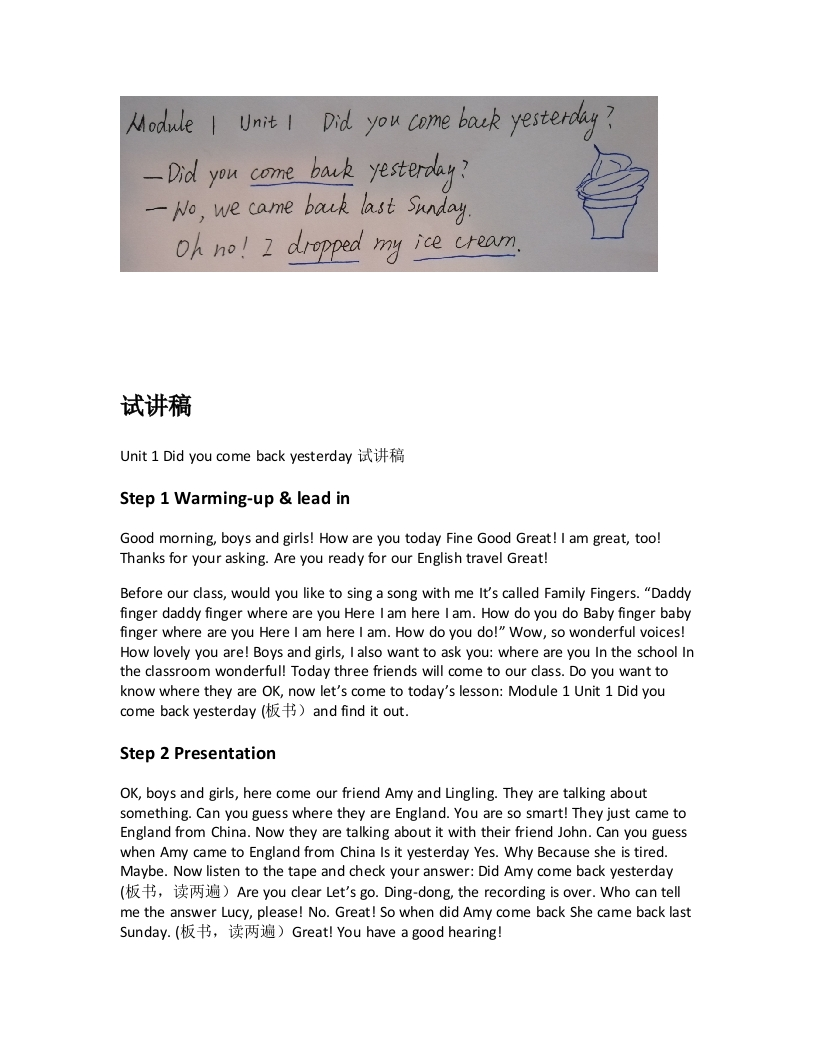 Module 1 Unit 1 Did you come back yesterday?
—Did you come back yesterday?
—No, we came back last Sunday.
Oh no! I dropped my ice cream.
试讲稿
Unit 1 Did you come back yesterday 试讲稿
Step 1 Warming-up & lead in
Good morning, boys and girls! How are you today Fine Good Great! I am great, too!
Thanks for your asking. Are you ready for our English travel Great!
Before our class, would you like to sing a song with me It’s called Family Fingers. “Daddy
finger daddy finger where are you Here I am here I am. How do you do Baby finger baby
finger where are you Here I am here I am. How do you do!” Wow, so wonderful voices!
How lovely you are! Boys and girls, I also want to ask you: where are you In the school In
the classroom wonderful! Today three friends will come to our class. Do you want to
know where they are OK, now let’s come to today’s lesson: Module 1 Unit 1 Did you
come back yesterday (板书）and find it out.
Step 2 Presentation
OK, boys and girls, here come our friend Amy and Lingling. They are talking about
something. Can you guess where they are England. You are so smart! They just came to
England from China. Now they are talking about it with their friend John. Can you guess
when Amy came to England from China Is it yesterday Yes. Why Because she is tired.
Maybe. Now listen to the tape and check your answer: Did Amy come back yesterday
(板书，读两遍）Are you clear Let’s go. Ding-dong, the recording is over. Who can tell
me the answer Lucy, please! No. Great! So when did Amy come back She came back last
Sunday. (板书，读两遍）Great! You have a good hearing!